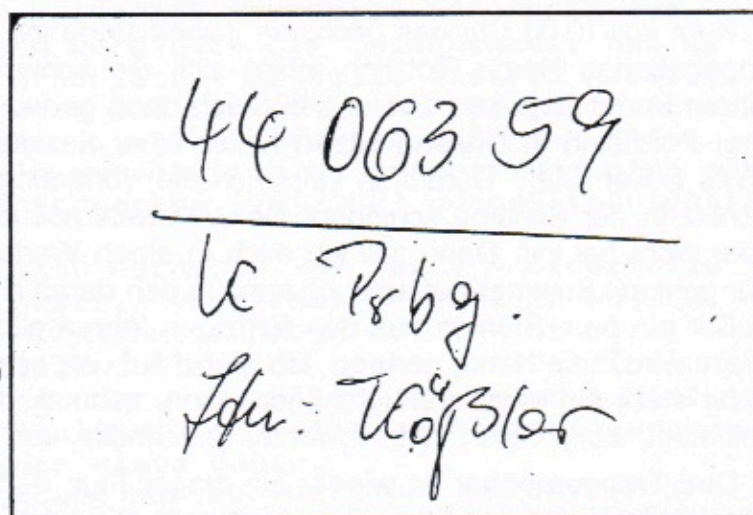 44 063 59
K Prbg.
Fdw: Käßler